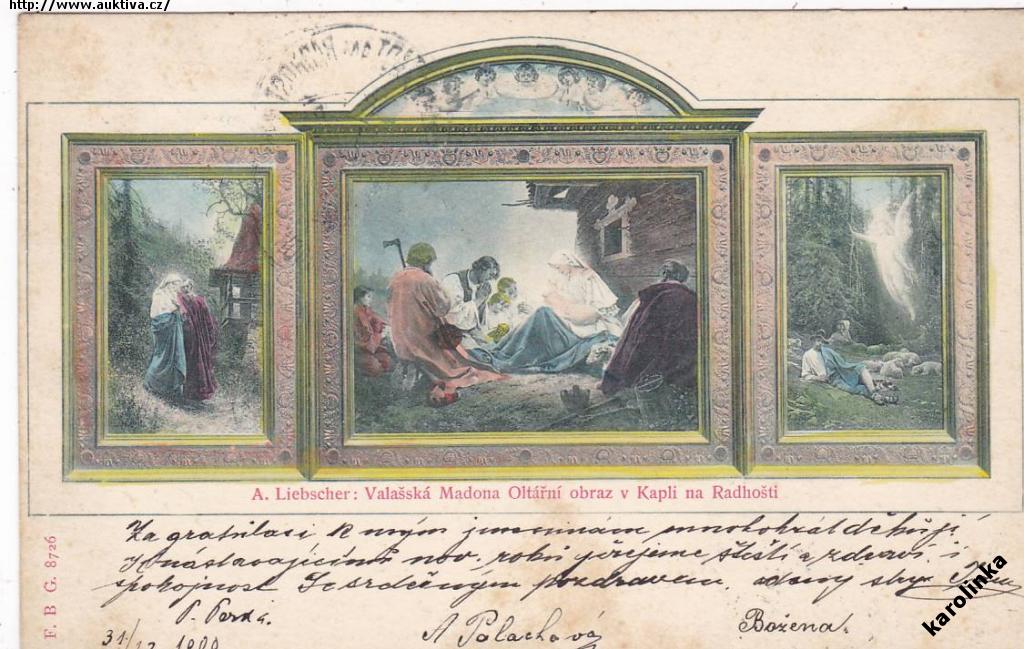 http://www.auktiva.cz/
A. Liebscher: Valašská Madona Oltářní obraz v Kapli na Radhošti
F. B G. 8726
Za gratulaci k mým jmeninám mnohokrát děkuji
nov. roku přejeme štěstí a zdraví i
spokojnost Se srdečným pozdravem
P. Perka.
A Palachová
Božena.
31/12
karolinka